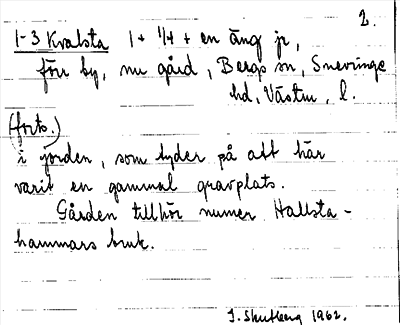 2.
1-3 Kvalsta 1 + 1/4 + en äng jr,
förr by, nu gård, Bergs sn, Snevringe
hd, Västm. l.
(forts.)
i jorden, som tyder på att här
varit en gammal gravplats.
Gården tillhör numer Hallsta-
hammars bruk.
1962.